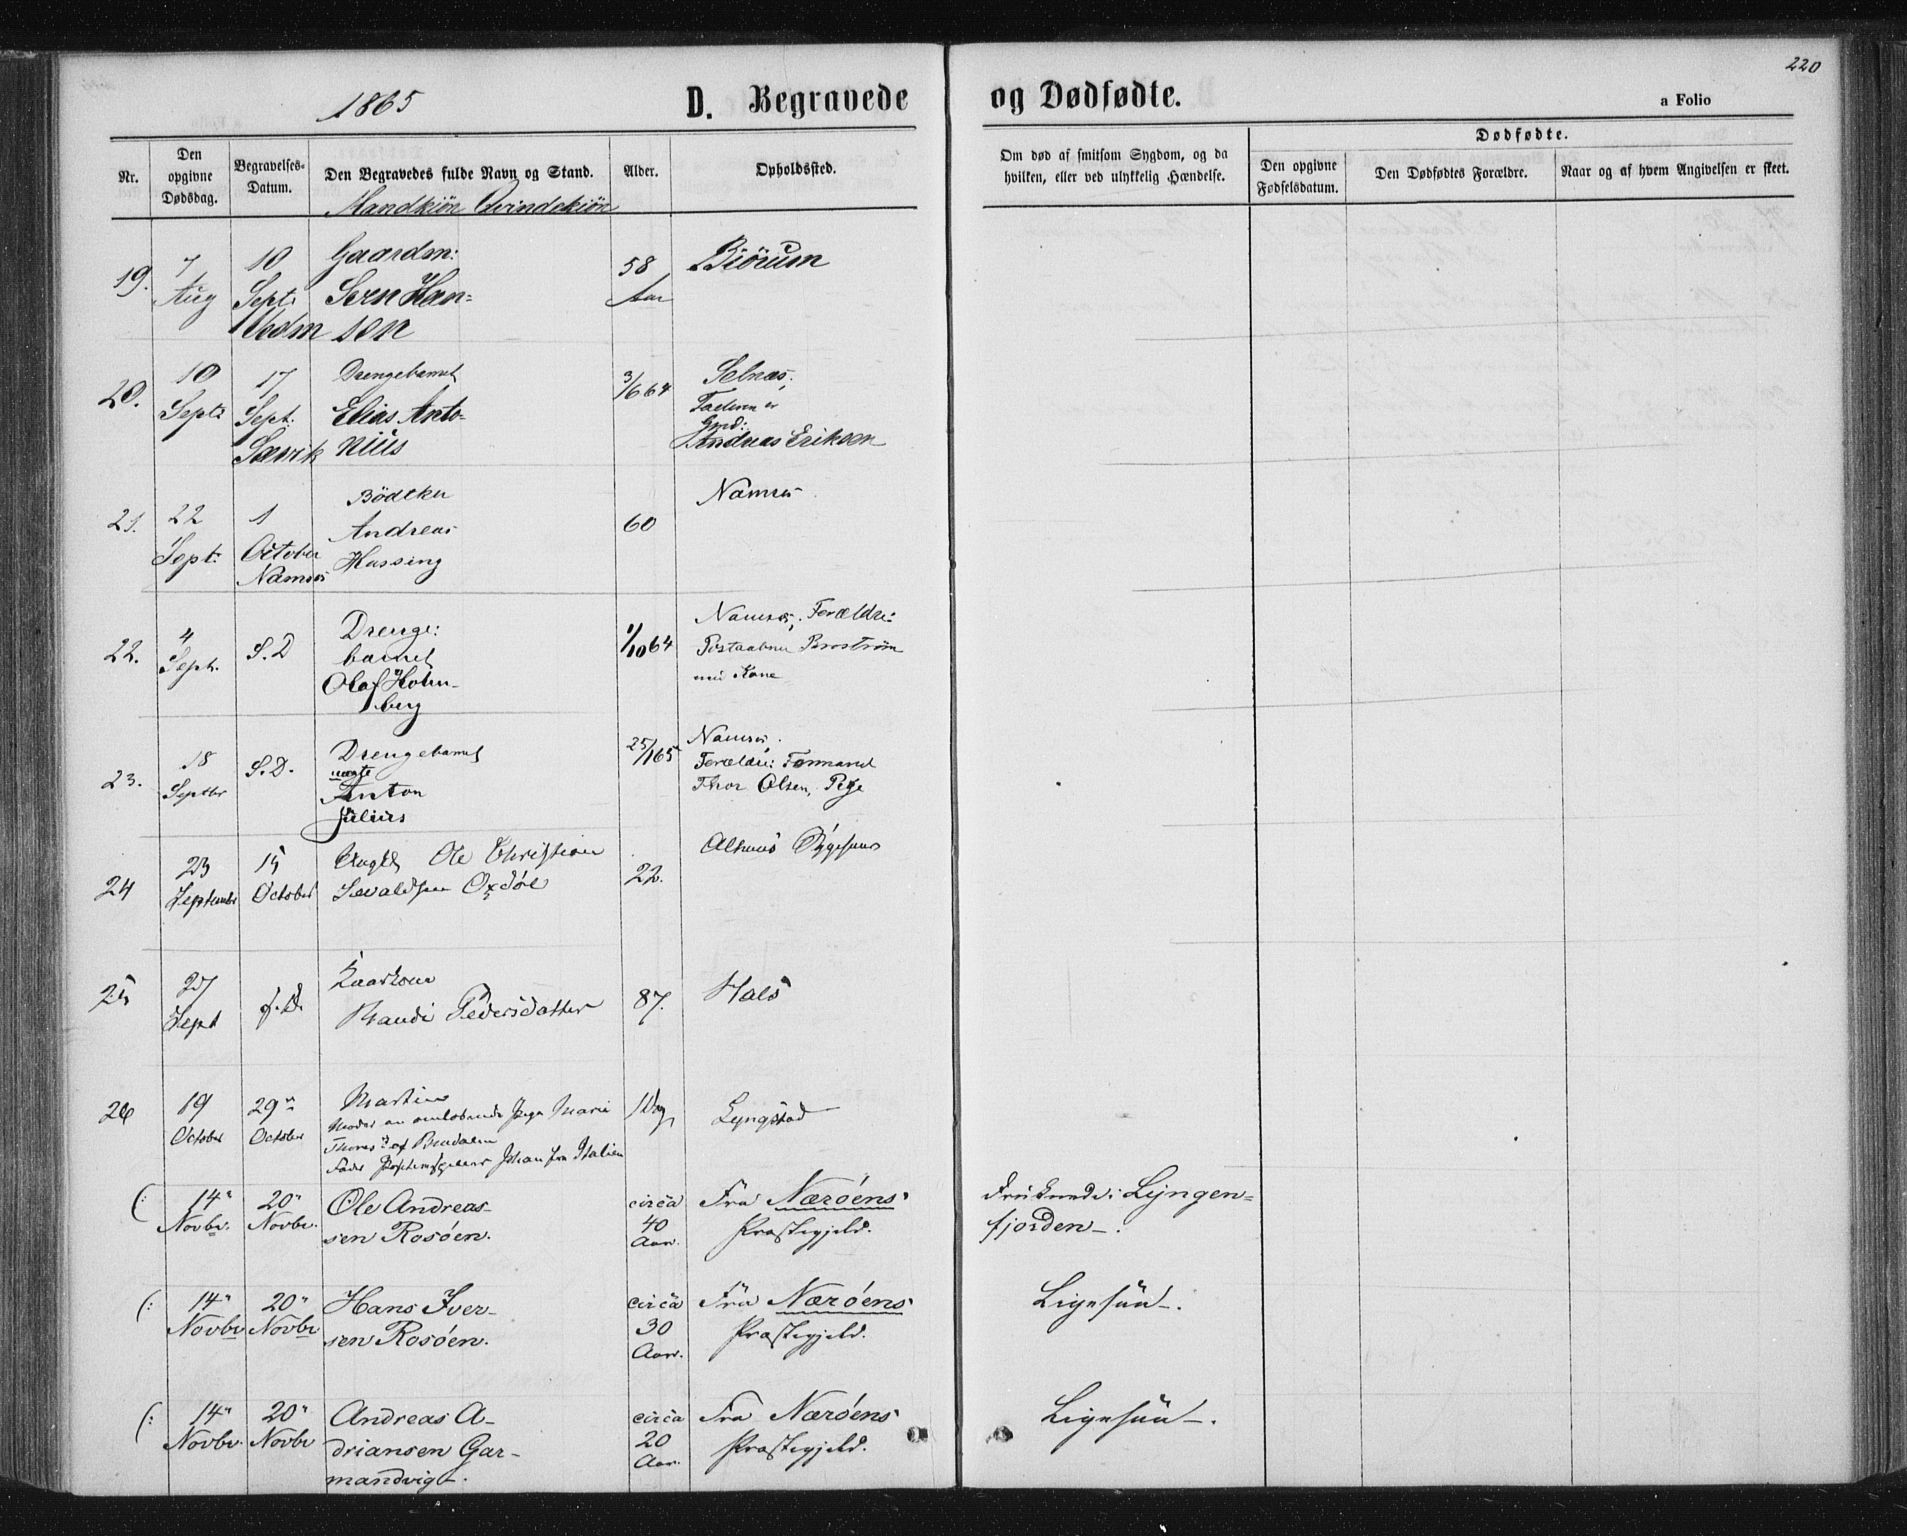 220
1865
D. Begravede
og Dødfødte.
a Folio
Nr.
Den opgivne Dødsdag.
Begravelses-Datum.
Den Begravedes fulde Navn og Stand.
Mandkiön Qvindekiön
Alder.
Opholdssted.
Om død af smitsom Sygdom, og da
hvilken, eller ved ulykkelig Hændelse.
Dødfødte.
Den opgivne
Fødselsdatum.
Den Dødfødtes Forældre.
Naar og af hvem Angivelsen er skeet.
19.
7
Aug
10
Sept:
Vedm
Gaardm:
Sern Han-
sen
58
Aar
Biörum
20.
10
Sept:
17
Sept.
Sævik
Drengebarnet
Elias Anto-
nius
3/6 64
Selnæs;
Faderen er
Gmd:
Andreas Eriksen
21.
22
Sept:
1
October
Namsos
Bödtker
Andreas
Hussing
60
Namsos
22.
4
Sept.
S. D
Drenge:
barnet
Olaf Holm-
berg
1/10 64
Namsos; Forældre:
Postaabner Brostrøm
med Kone
23.
18
Septbr
S. D.
Drengebarnet
uægte
Anton
Julius
25/1 65
Namsos.
Forældre: Formand
Thor Olsen, Pige
24
23
September
15
October
Ungk Ole Christian
Sevaldsen Oxdöl
22.
Sygehuus
25
27
Sept
S. D.
Randi Pedersdatter
87.
Hals
26
19
October
29
October
Martin
Moder an omløbende Inga Marie
Fader Johan fra Italien
1 Dag
Lyngstad
(:
14"
Novbr.
20"
Novbr.
Ole Andreas-
sen Rosöen.
circa
40
Aar.
Fra Næröens
Præstegjeld.
Druknede i Lyngen-
fjorden -.
(:
14"
Novbr
20"
Novbr
Hans Iver-
sen Rosöen.
circa
30
Aar.
Fra Næröens
Præstegjeld.
Ligesaa -.
(:
14"
Novbr.
20"
Novbr
Andreas A-
driansen Gar-
mandvig -.
circa
20
Aar.
Fra Næröens
Præstegjeld.
Ligesaa -.